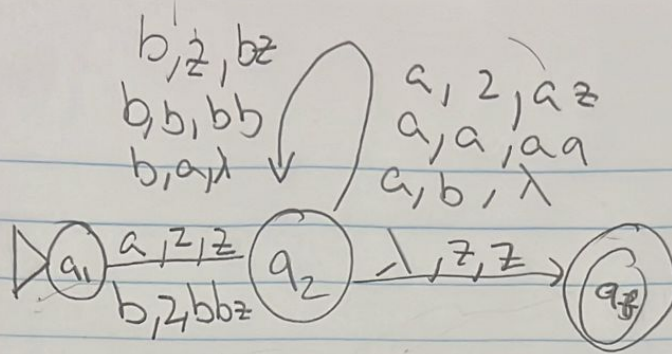 b,z,bz
b,b,bb
b,a,λ
a,z,az
a,a,aa
a,b,λ
q1
a,z,z
b,z,bbz
q2
λ,z,z
qf